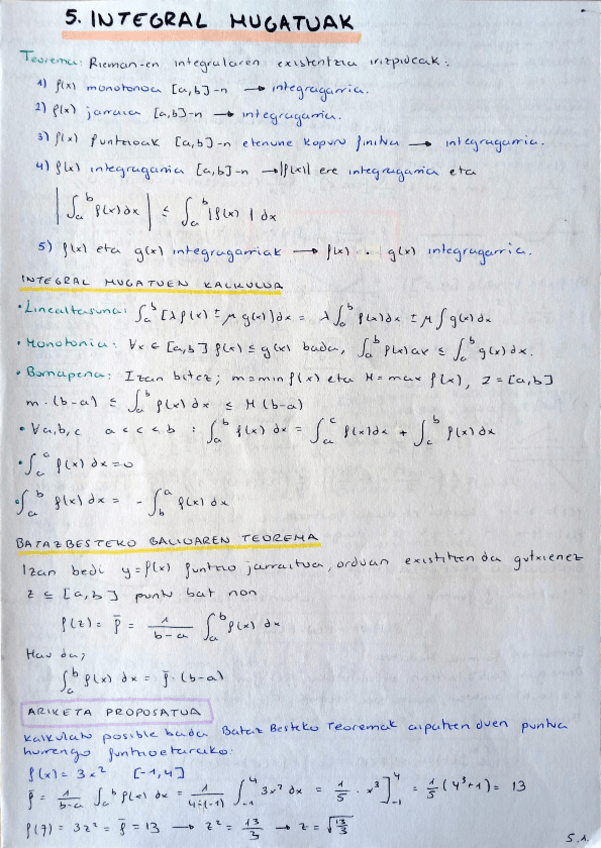 5. INTEGRAL MUGATUAK
Teorema: Rieman-en integralaren existentzia irizpideak:
1) f(x) monotonoa [a,b]-n → integragarria.
2) f(x) jarraia [a,b]-n → integragarria.
3) f(x) funtzioak [a,b]-n etenune kopuru finitua → integragarria.
4) f(x) integragarria [a,b]-n → |f(x)| ere integragarria eta
|∫_a^b f(x) dx| ≤ ∫_a^b |f(x)| dx
5) f(x) eta g(x) integragarriak → f(x) · g(x) integragarria.
INTEGRAL MUGATUEN KALKULUA
• Linealtasuna: ∫_a^b [λf(x) ± μ g(x)] dx = λ ∫_a^b f(x) dx ± μ ∫ g(x) dx
• Monotonia: ∀x ∈ [a,b] f(x) ≤ g(x) bada, ∫_a^b f(x) dx ≤ ∫_a^b g(x) dx.
• Bornapena: Izan bitez; m=min f(x) eta M=max f(x), z=[a,b]
m·(b-a) ≤ ∫_a^b f(x) dx ≤ M(b-a)
• ∀a,b,c a<c<b : ∫_a^b f(x) dx = ∫_a^c f(x) dx + ∫_c^b f(x) dx
• ∫_a^a f(x) dx = 0
• ∫_a^b f(x) dx = - ∫_b^a f(x) dx
BATAZBESTEKO BALIOAREN TEOREMA
Izan bedi y=f(x) funtzio jarraitua, orduan existitzen da gutxienez
z ≤ [a,b] puntu bat non
f(z) = f̄ = 1/(b-a) ∫_a^b f(x) dx
Hau da;
∫_a^b f(x) dx = f̄·(b-a)
ARIKETA PROPOSATUA
Kalkulatu posible bada Bataz Besteko Teoremak aipatzen duen puntua
hurrengo funtzioetarako:
f(x) = 3x² [-1,4]
f̄ = 1/(b-a) ∫_a^b f(x) dx = 1/(4-(-1)) ∫_{-1}^4 3x² dx = 1/5 · x³]_{-1}^4 = 1/5 (4³+1) = 13
f(z) = 3z² = f̄ = 13 → z² = 13/3 → z = √(13/3)
5.1.